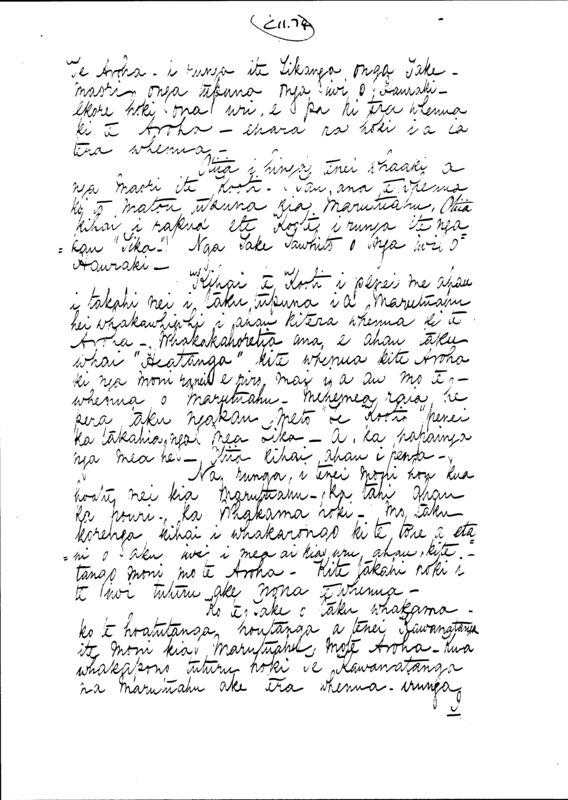 C11.74
Te Aroha - i runga ite Tikanga onga Take -
maori, onga tupuna onga iwi o Hauraki -
ekore hoki ona uri, e pa ki tera whenua
ki te Aroha - ehara ra hoki i a ia
tera whenua -
Otiia i hinga tenei whaaki a
nga maori ite Kooti - ana te whenua
ki to matou tupuna kia Marutuahu, Otiia
kihai i rakua ete Kooti i runga ite nga
=kau "Tika". Nga Take Tawhito o nga iwi O=
Hauraki -
Kihai te Kooti i penei me ahau
i takahi nei i taku tupuna i a Marutuahu
hei whakawhiwhi i ahau kitera whenua ki te
Aroha - Whakakahoretia ana e ahau taku
whai "Heatanga" kite whenua kite Aroha
ki nga moni e mai ia au mo te -
whenua o Marutuahu - Mehemea raia, he
pera taku ngakau me to "Te Kooti" penei
ka takahia nga mea Tika - A, ka hapainga
nga mea he - Otiia kihai ahau i penea -
Na, runga i tenei moni hou kua
hoatu nei kia Marutuahu - ka tahi ahau
ka pouri - ka Whakama hoki - Mo, taku
korenga kihai i whakarongo ki te tono a eta=
=ni o aku iwi i mea ai kia uru ahau kite =
tango moni mo te Aroha - Kite Takahi hoki i
te iwi tuturu ake nona te whenua -
Ko te Take o taku whakama -
ko te hoatutanga houtanga a tenei Kawanatanga
ite moni kia Marutuahu mote Aroha - kua
whakapono tuturu hoki te Kawanatanga
na Marutuahu ake tera whenua - irunga